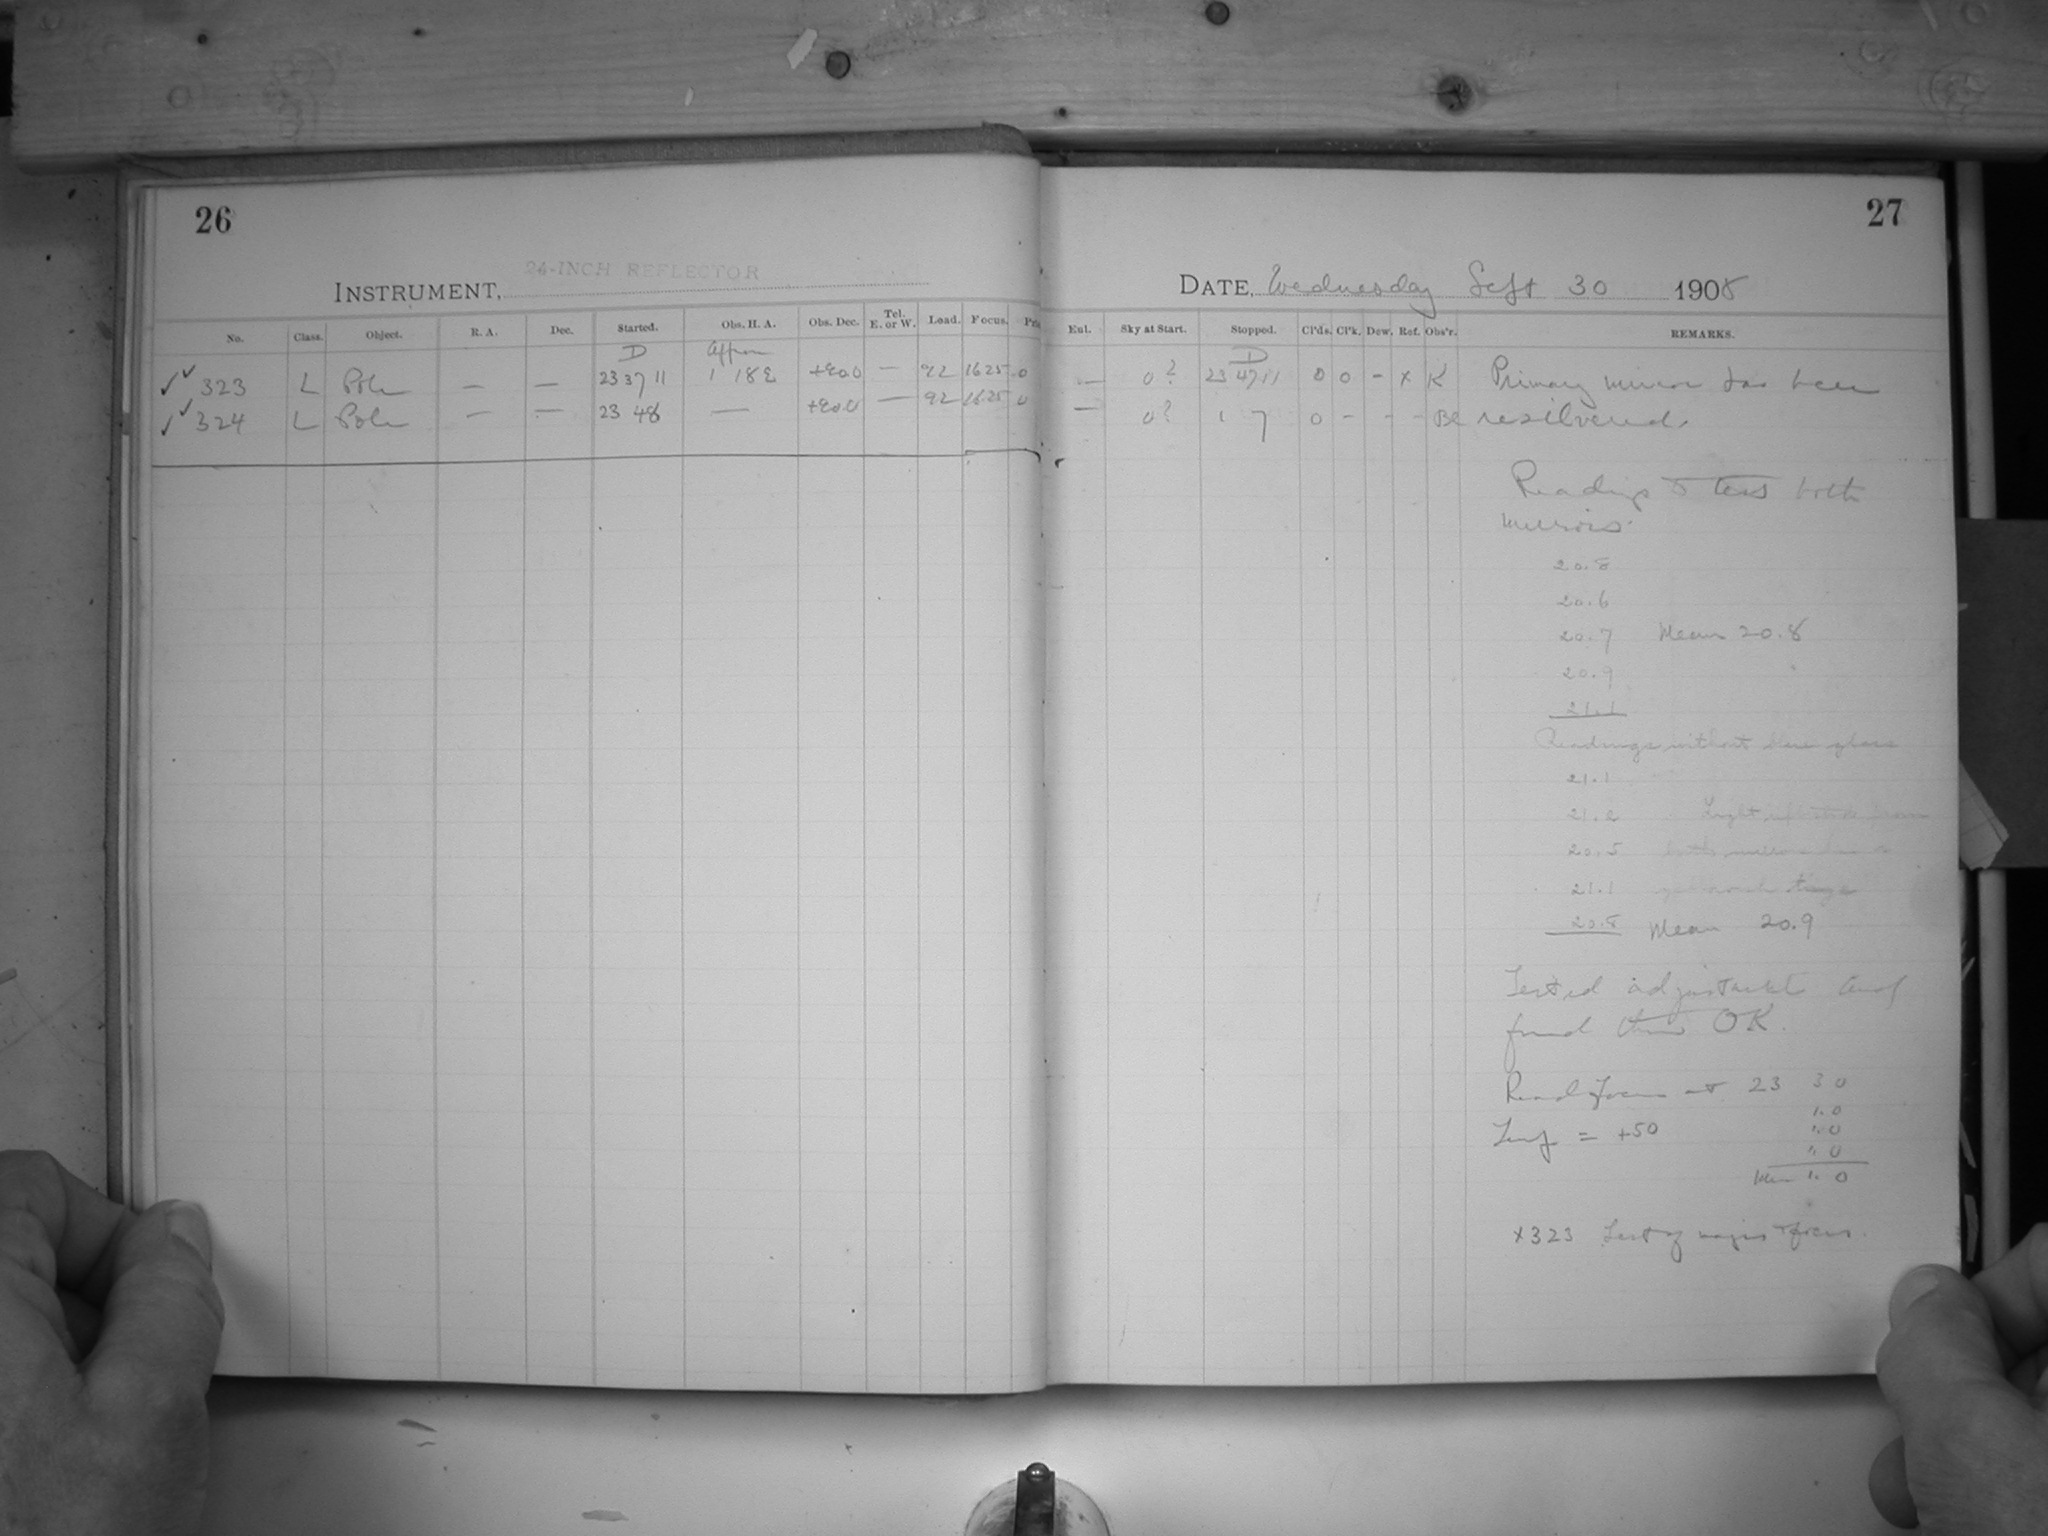 26
24-INCH REFLECTOR
INSTRUMENT,
No. Class. Object. R. A. Dec. Started. Obs. H. A. Obs. Dec. Tel. E. or W. Load. Focus.
D
323 L Pole — — 23 37 11 1 18 E — 92 1625 0
324 L Pole — — 23 48 — — 92 1625 0
27
DATE, Wednesday Sept 30 1908
Ent. Sky at Start. Stopped. Cl'ds. Cl'k. Dew. Ref. Obs'r. REMARKS.
D
— 0? 23 47 11 0 0 - x K Primary mirror has been
— 0? 1 7 0 - - - Be resilvered.
Readings to test both
mirrors.
20.8
20.6
20.7 Mean 20.8
20.9
21.1
Readings without blue glass
21.1
21.2 Light reflected from
20.5 both mirrors has a
21.1 yellowish tinge
20.8 Mean 20.9
Tested adjustments and
found them OK.
Read focus at 23 30
1.0
Temp = +50 1.0
1.0
Mean 1.0
x323 Test of focus.